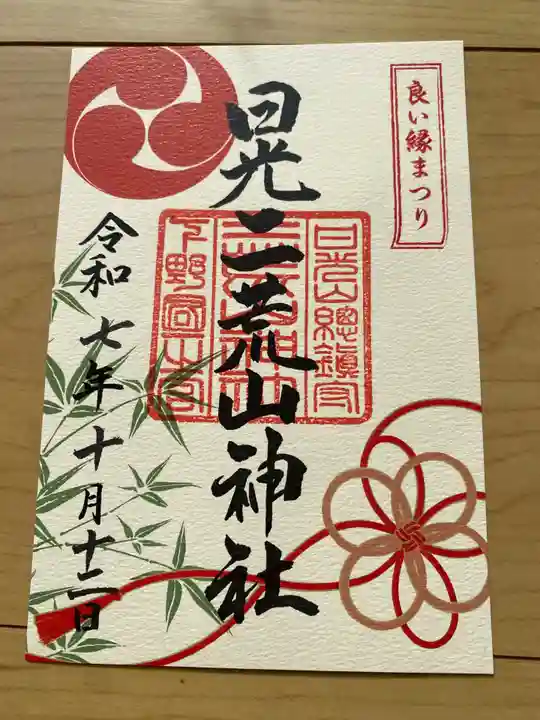 良い縁まつり
日光二荒山神社
日光山總鎮守
下野國一之宮
令和七年十月十二日